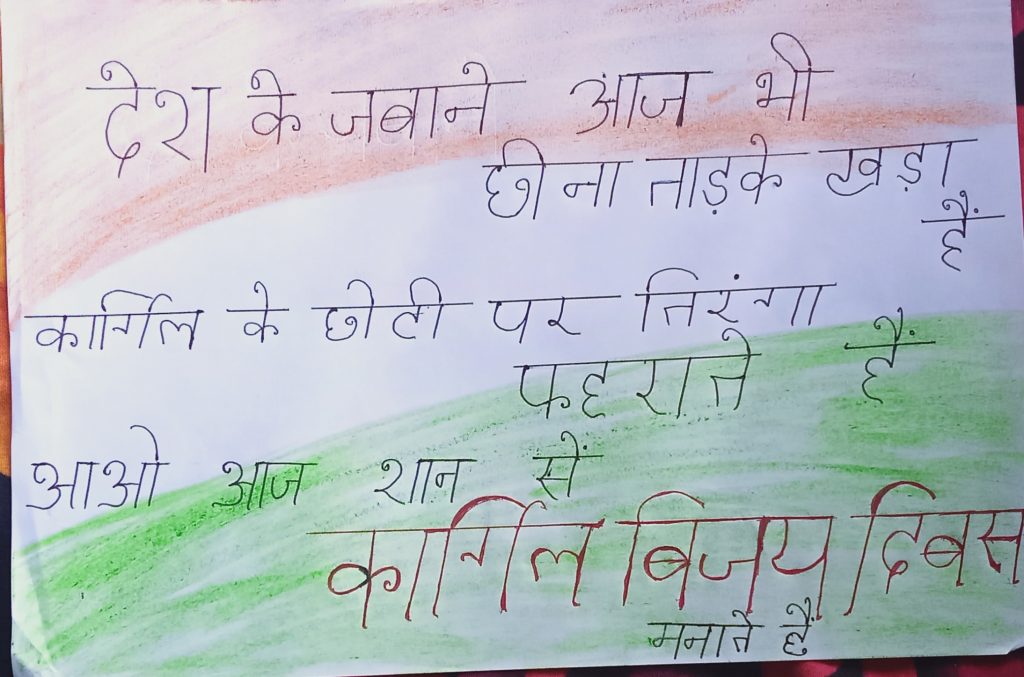 देश के जबाने आज भी
छीना ताड़के खड़ा
हैं
कार्गिल के छोटी पर तिरंगा
फहराते हैं
आओ आज शान सें
कार्गिल बिजय दिबस
मनाते हैं